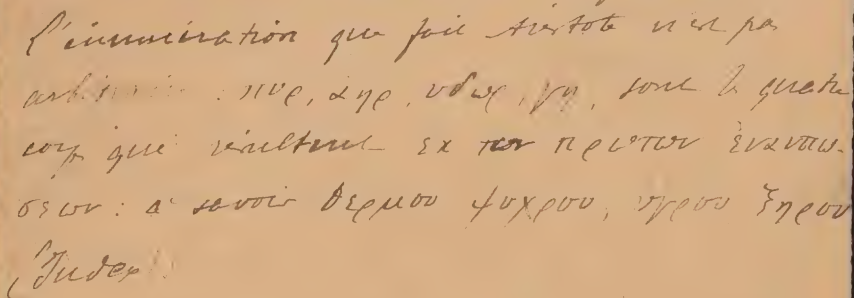 L'énumération que fait Aristote n'est pas
arbitraire : πυρ, αηρ, υδωρ, γη, sont les quatre
corps qui résultent εκ των πρωτων ἐναντιω-
σεων : a savoir θερμου ψυχρου, υγρου ξηρου
(Index